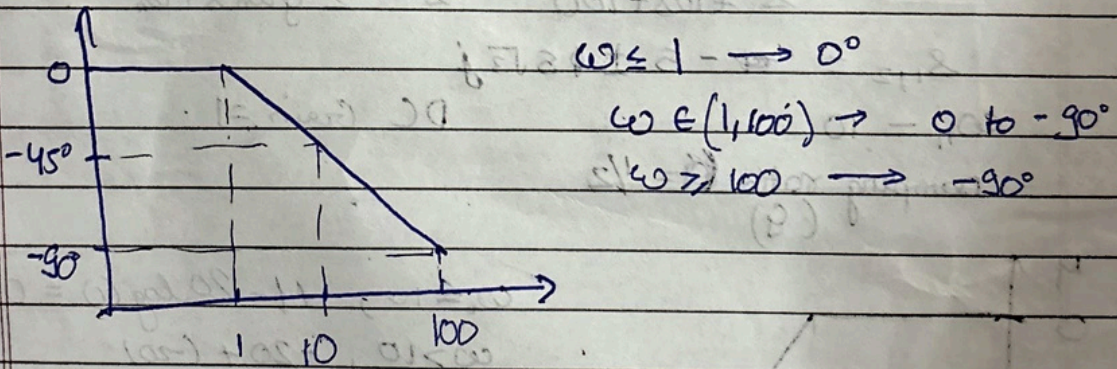 0
-45°
-90
1 10 100
ω ≤ 1 - → 0°
ω ∈ (1,100) → 0 to -90°
ω ≥ 100 → -90°